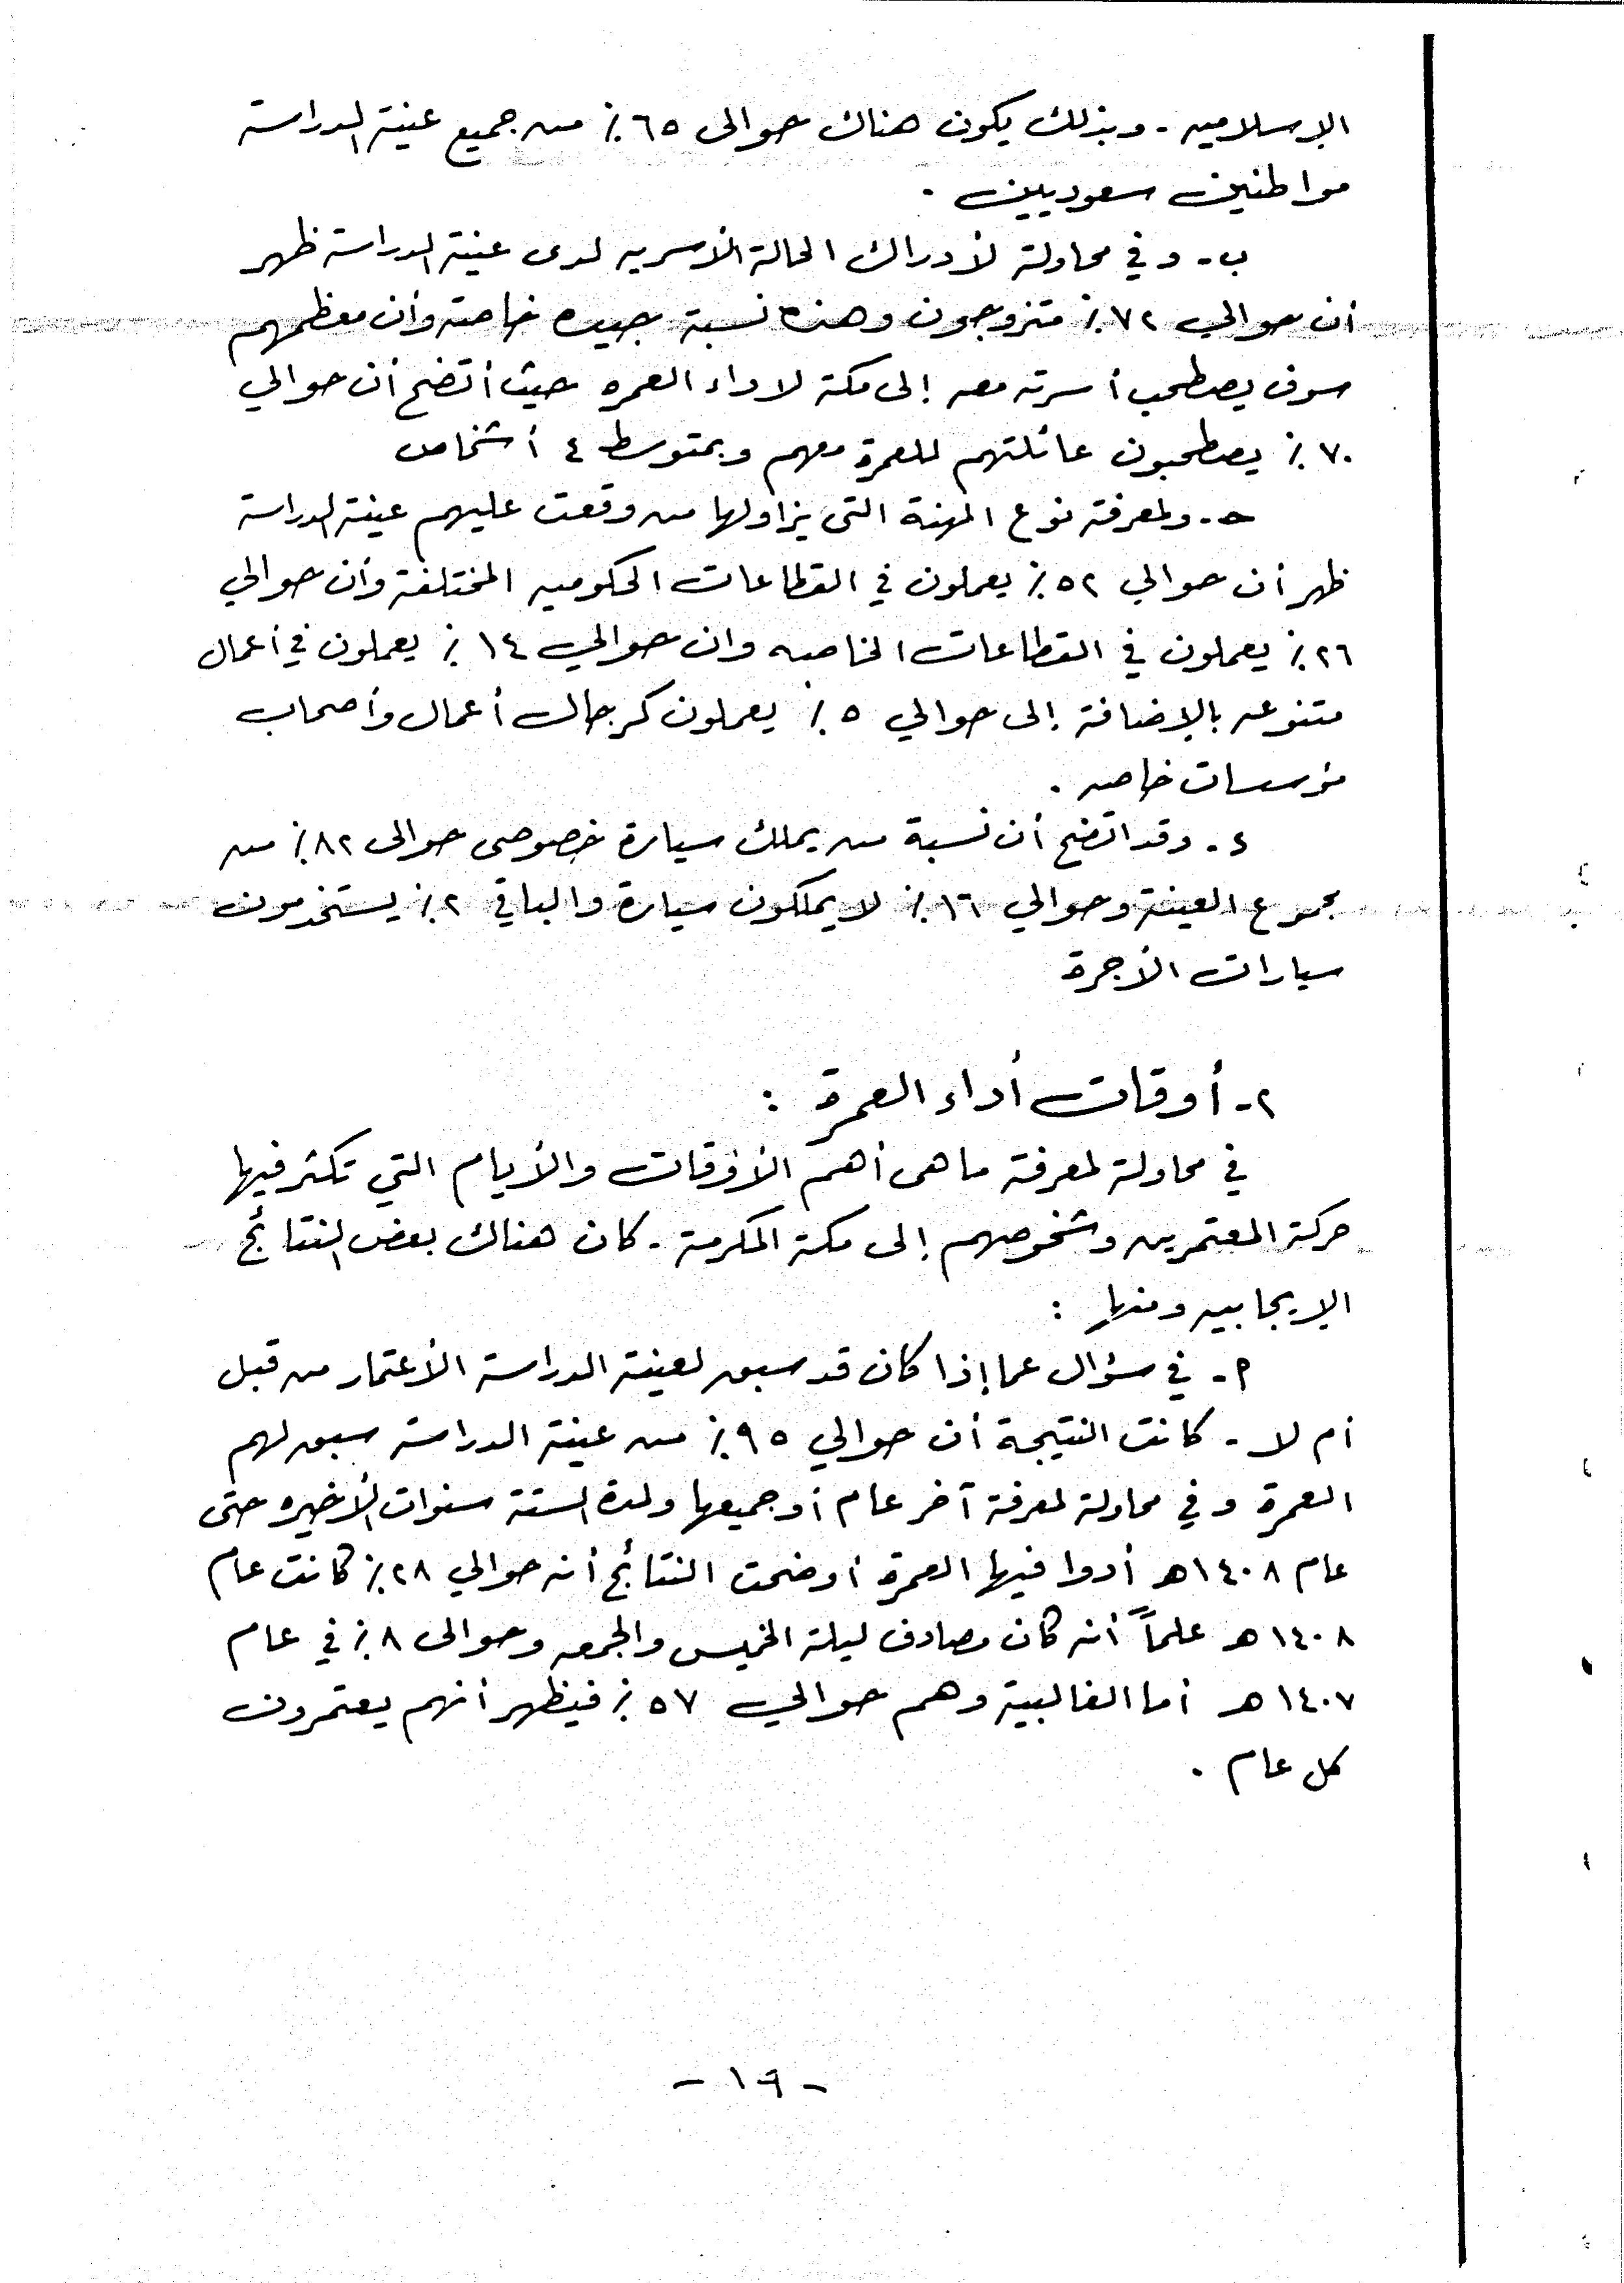 الإسلاميه - وبذلك يكون هناك حوالى ٦٥٪ من جميع عينة الدراسة
مواطنين سعوديين .
ب - وفي محاولة لأدراك الحالة الأسريه لدى عينة الدراسة ظهر
أن حوالي ٧٢٪ متزوجون وهذه نسبة جيده خاصة وأن معظمهم
سوف يصطحب أسرته معه إلى مكة لاداء العمره حيث أتضح أن حوالي
٧٠٪ يصطحبون عائلتهم للعمرة معهم وبمتوسط ٤ أشخاص
حـ - ولمعرفة نوع المهنة التى يزاولها من وقعت عليهم عينة الدراسة
ظهر أن حوالي ٥٢٪ يعملون في القطاعات الحكوميه المختلفة وأن حوالي
٢٦٪ يعملون في القطاعات الخاصه وان حوالي ١٤٪ يعملون في أعمال
متنوعه بالإضافة إلى حوالي ٥٪ يعملون كرجال أعمال وأصحاب
مؤسسات خاصه .
د - وقد اتضح أن نسبة من يملك سيارة خصوصى حوالى ٨٢٪ من
مجموع العينة وحوالي ١٦٪ لا يملكون سيارة والباقي ٢٪ يستخدمون
سيارات الأجرة
٢ - أوقات أداء العمرة :
في محاولة لمعرفة ماهى أهم الأوقات والأيام التي تكثر فيها
حركة المعتمرين وشخوصهم إلى مكة المكرمة - كان هناك بعض النتائج
الإيجابيه ومنها :
م - في سؤال عما إذا كان قد سبق لعينة الدراسة الأعتمار من قبل
أم لا - كانت النتيجة أن حوالي ٩٥٪ من عينة الدراسة سبق لهم
العمرة وفي محاولة لمعرفة آخر عام أو جميعها ولمدة الستة سنوات الأخيره حتى
عام ١٤٠٨هـ أدوا فيها العمرة أوضحت النتائج أنه حوالي ٢٨٪ كانت عام
١٤٠٨هـ علماً أنه كان مصادف ليلة الخميس والجمعه وحوالى ٨٪ في عام
١٤٠٧هـ أما الغالبية وهم حوالي ٥٧٪ فيظهر أنهم يعتمرون
كل عام .
- ١٩ -